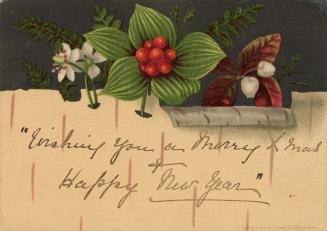 "Wishing You a Merry Xmas
&
Happy New Year"